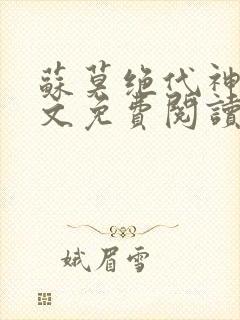 蘇莫绝代神
文免費閱讀
娥眉雪